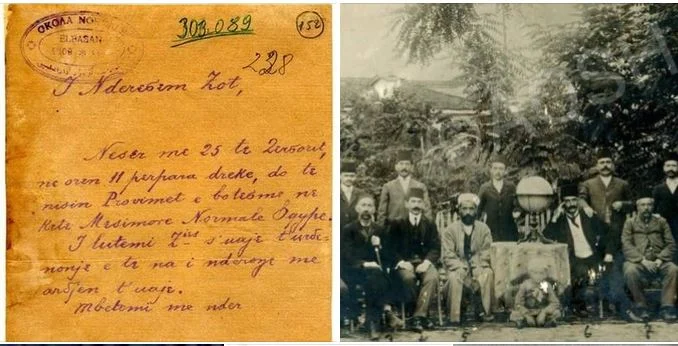 ELBASAN
303089
152
228
I Ndereşem Zot,
Neser me 25 te
ne oren 11 perpara dreke, do te
nisin Provimet e boteşme ne
kete Mesimore Normale Sqype.
I lutemi s'uaje t'urde-
nonje e te na i nderoje me
ardjen t'uaje.
Mbetemi me nder
5 6 7